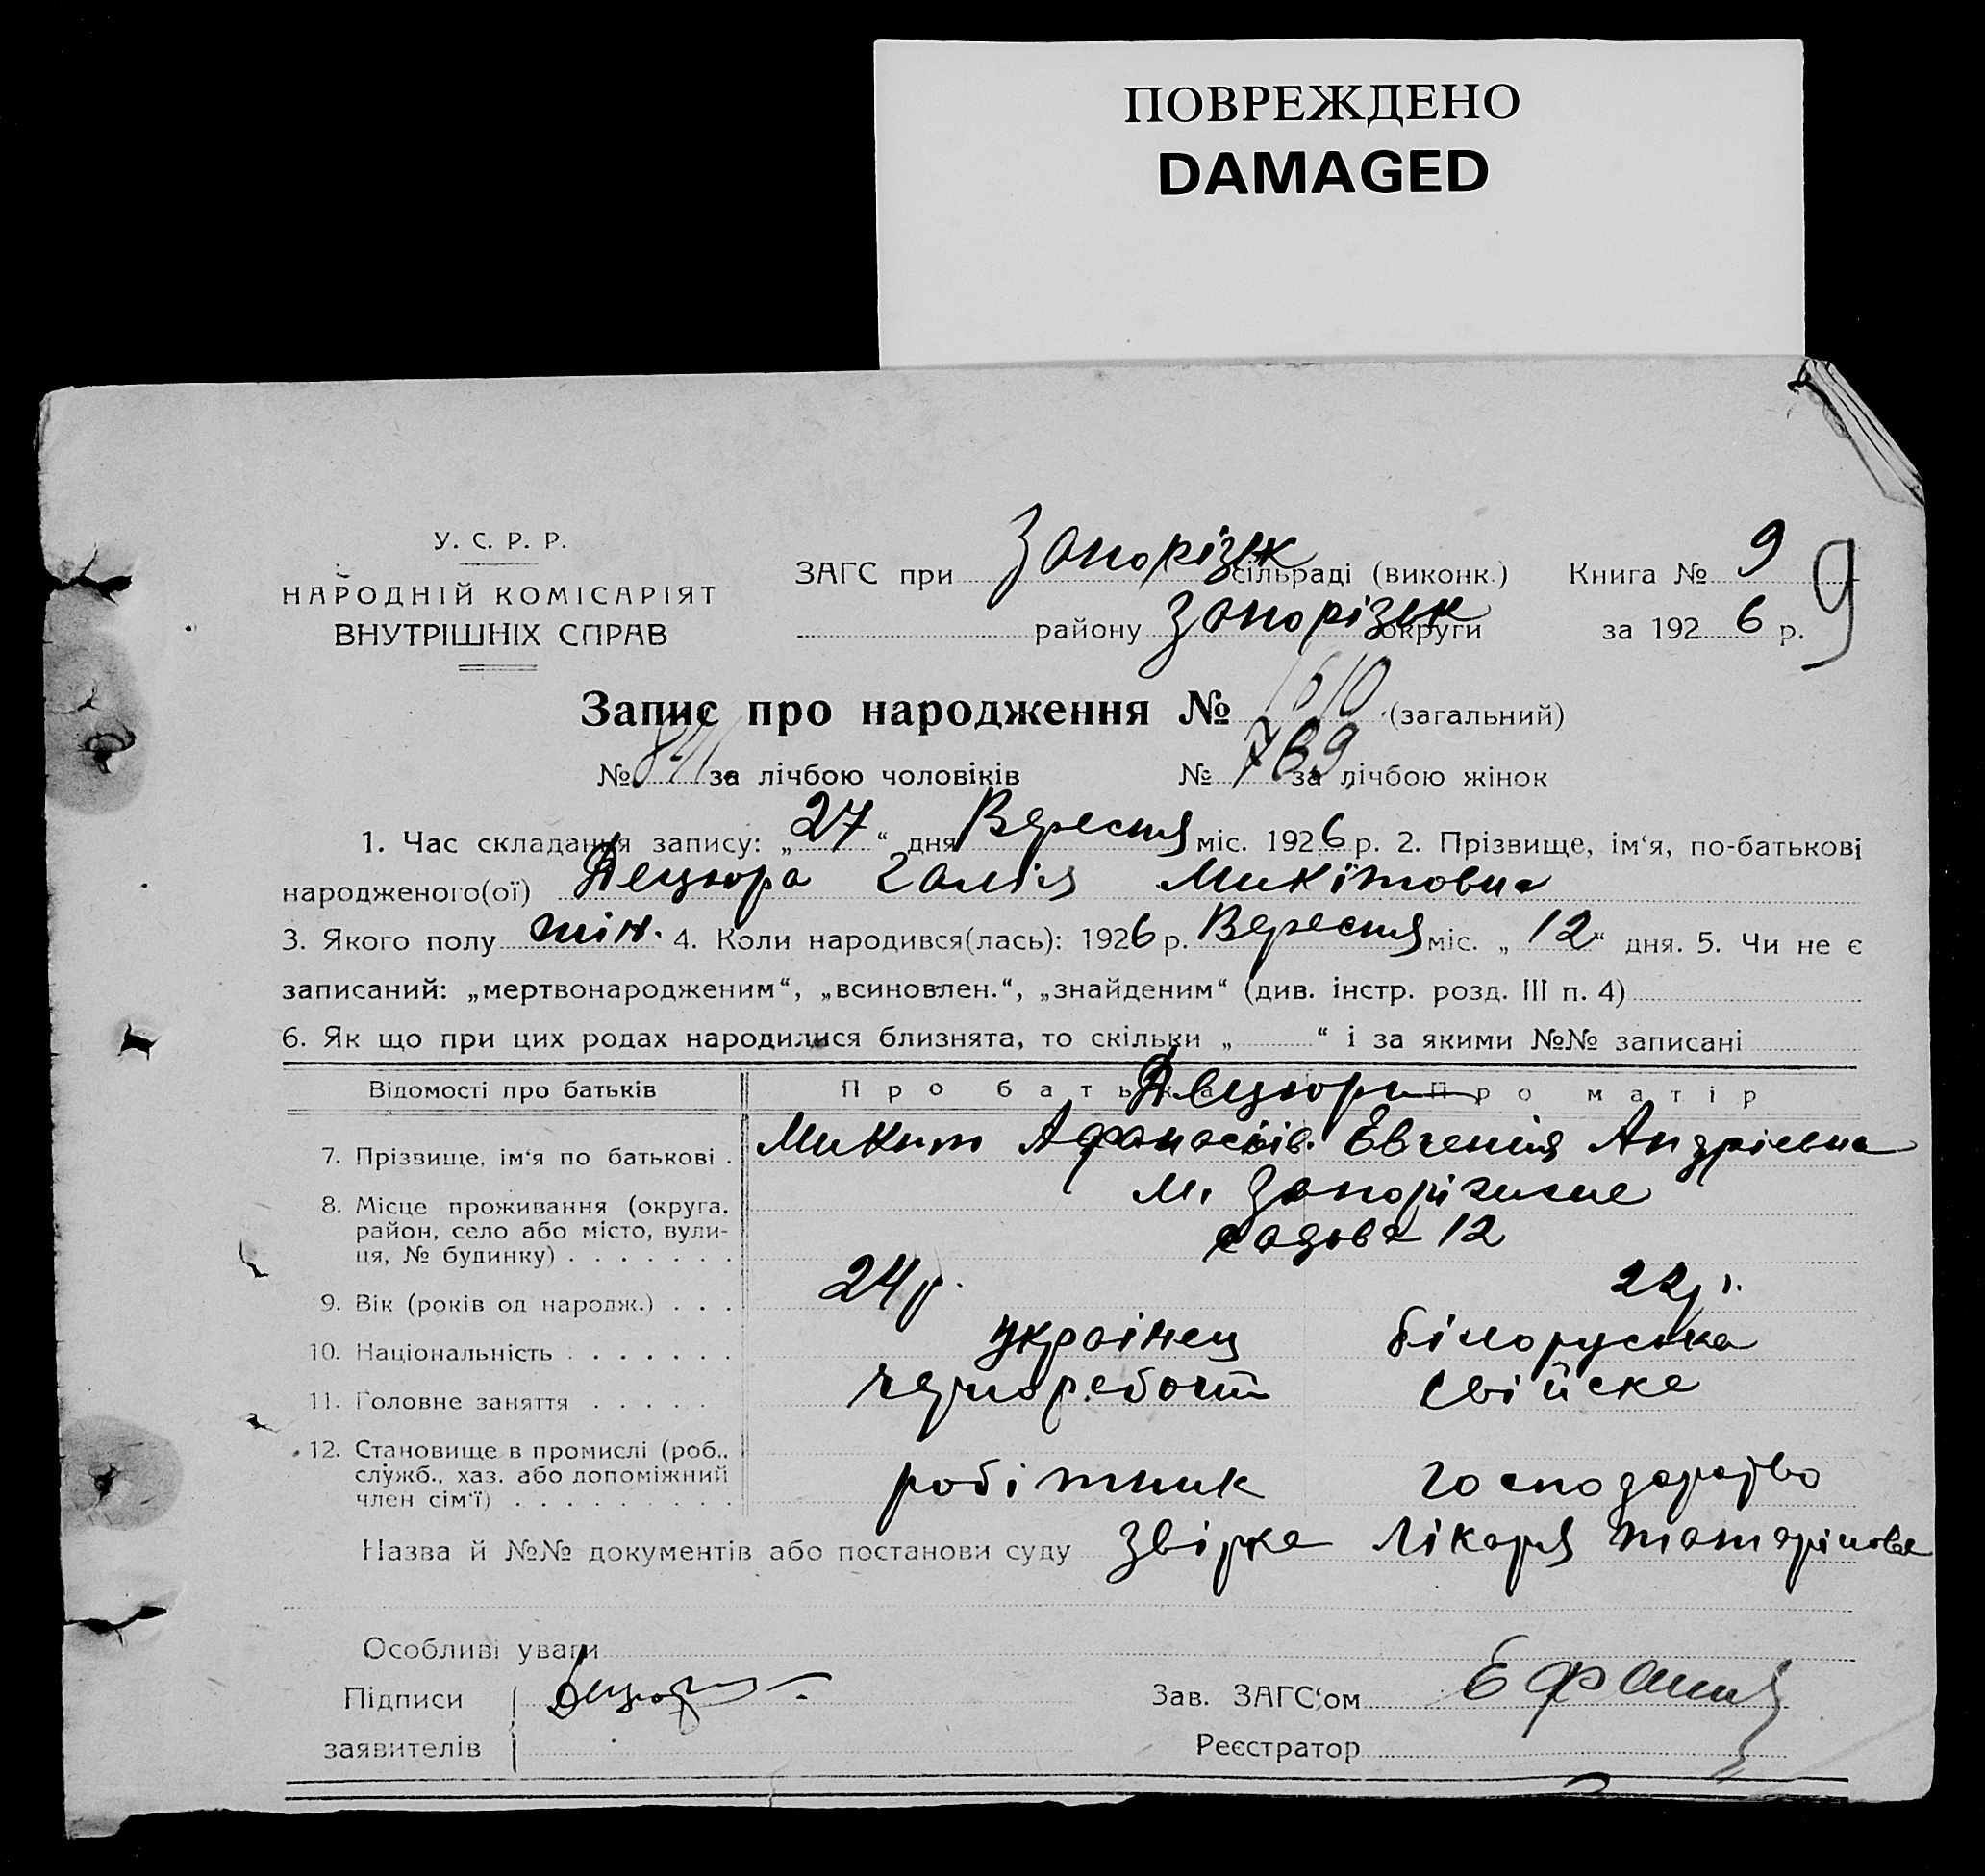 ПОВРЕЖДЕНО
DAMAGED
У. С. Р. Р.
НАРОДНІЙ КОМІСАРІЯТ
ВНУТРІШНІХ СПРАВ
ЗАГС при Запорізьк сільраді (виконк.) Книга № 9
9
району Запорізьк округи за 1926 р.
Запис про народження № 1610 (загальний)
№ 841 за лічбою чоловіків № 769 за лічбою жінок
1. Час складання запису: „27“ дня Вересня міс. 1926 р. 2. Прізвище, ім‘я, по-батькові
народженого(ої) Децюра Галія Микітовна
3. Якого полу жін. 4. Коли народився(лась): 1926 р. Вересня міс. „12“ дня. 5. Чи не є
записаний: „мертвонародженим“, „всиновлен.“, „знайденим“ (див. інстр. розд. III п. 4)
6. Як що при цих родах народилися близнята, то скільки „ “ і за якими №№ записані
Відомості про батьків Про батька Про матір
Децюри
7. Прізвище, ім‘я по батькові . Микит Афанасьів. Євгенія Андрієвна
8. Місце проживання (округа, м. Запоріжжє
район, село або місто, вули- садова 12
ця, № будинку) . . . . . . .
9. Вік (років од народж.) . . . 24 р. 22 р.
10. Національність . . . . . . . українец білоруська
11. Головне заняття . . . . . чорноробоч свійске
12. Становище в промислі (роб.,
служб., хаз. або допоміжний робітник господарство
член сім‘ї) . . . . . . . . .
Назва й №№ документів або постанови суду звірка лікаря Татарінова
Особливі уваги
Підписи Децюра Зав. ЗАГС‘ом
заявителів Реєстратор